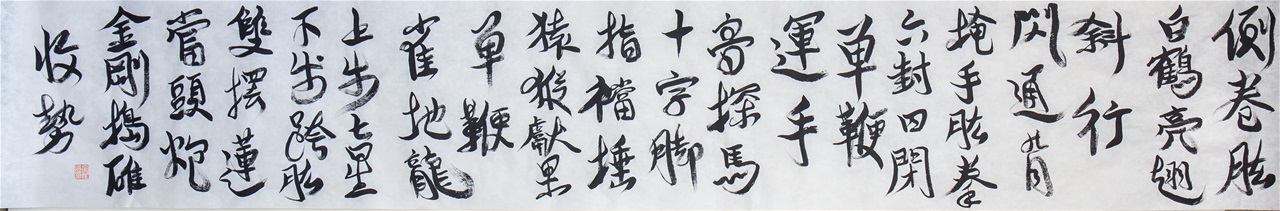 側卷肱
白鶴亮翅
斜行
閃通背
掩手肱拳
六封四閉
单鞭
運手
高探馬
十字脚
指襠捶
猿猴獻果
单鞭
雀地龍
上步七星
下步跨肱
雙擺蓮
當頭炮
金剛搗碓
收勢